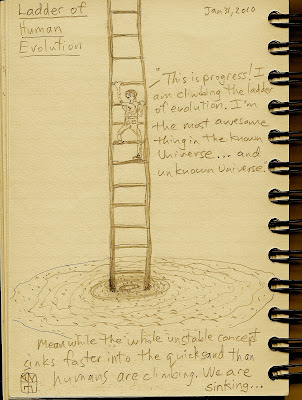 Ladder of
Human
Evolution
Jan 31, 2010
"This is progress! I
am climbing the ladder
of evolution. I'm
the most awesome
thing in the known
Universe... and
unknown Universe."
Meanwhile the whole unstable concept
sinks faster into the quicksand than
humans are climbing. We are
sinking...